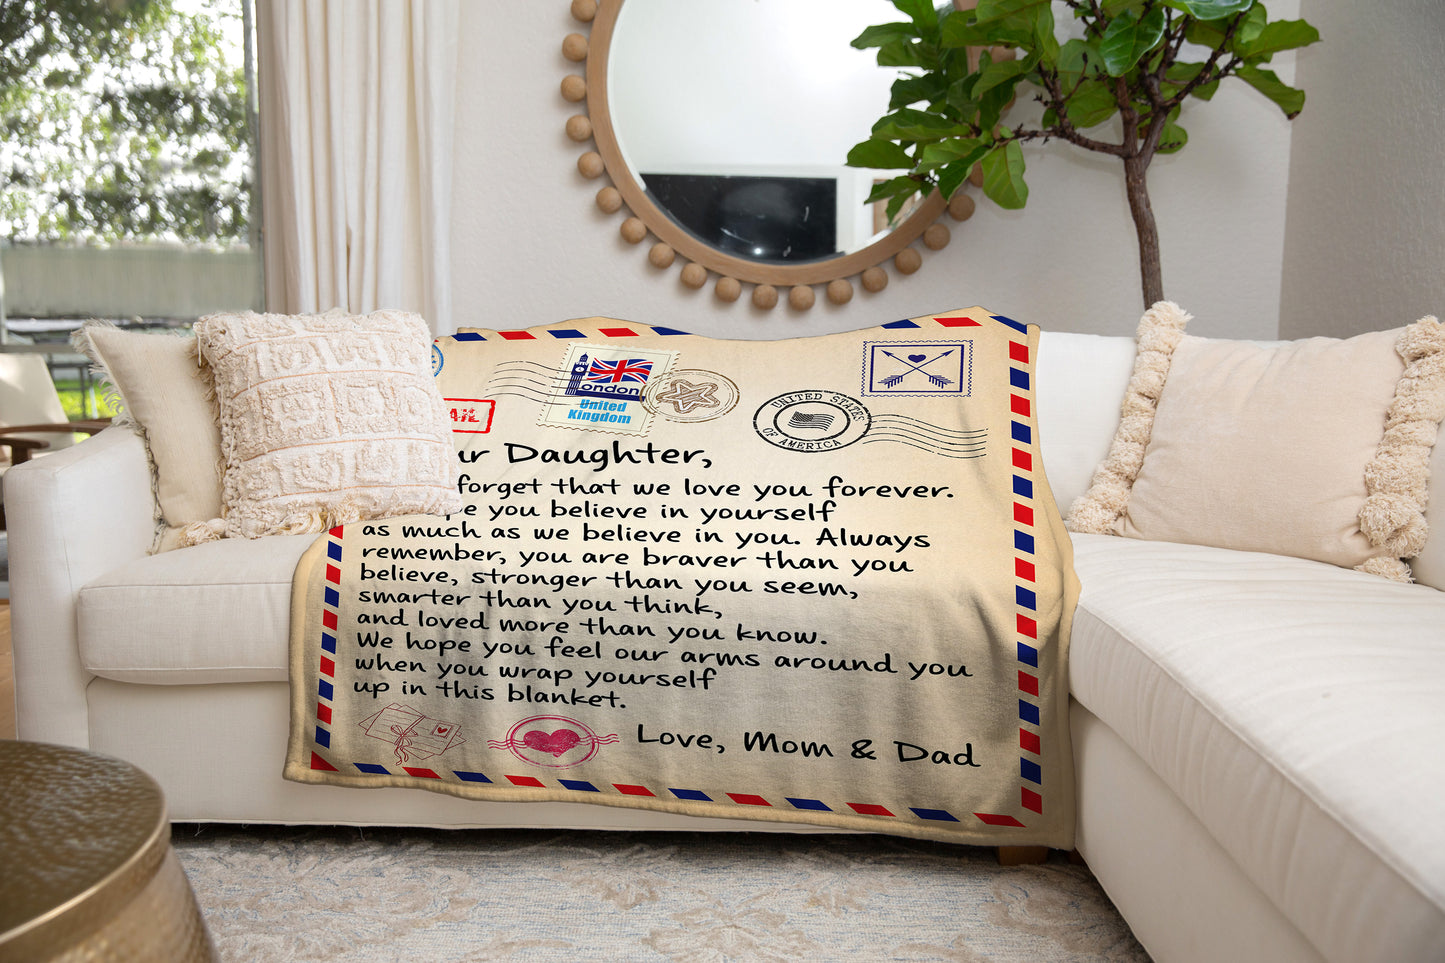 London
United
Kingdom
UNITED STATES
OF AMERICA
Daughter,
forget that we love you forever.
you believe in yourself
as much as we believe in you. Always
remember, you are braver than you
believe, stronger than you seem,
smarter than you think,
and loved more than you know.
We hope you feel our arms around you
when you wrap yourself
up in this blanket.
Love, Mom & Dad